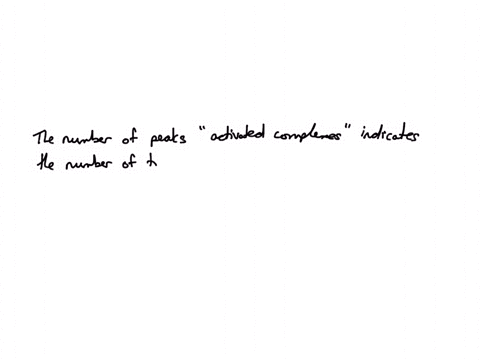 The number of peaks "activated complexes" indicates
the number of t